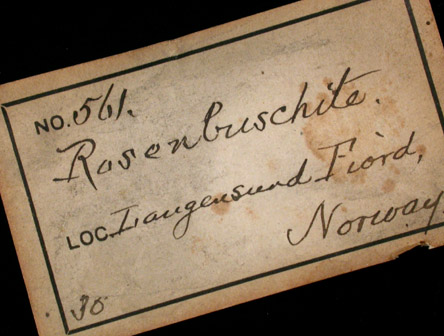 NO. 561.
Rosenbuschite.
LOC. Langensund Fiord,
Norway
30